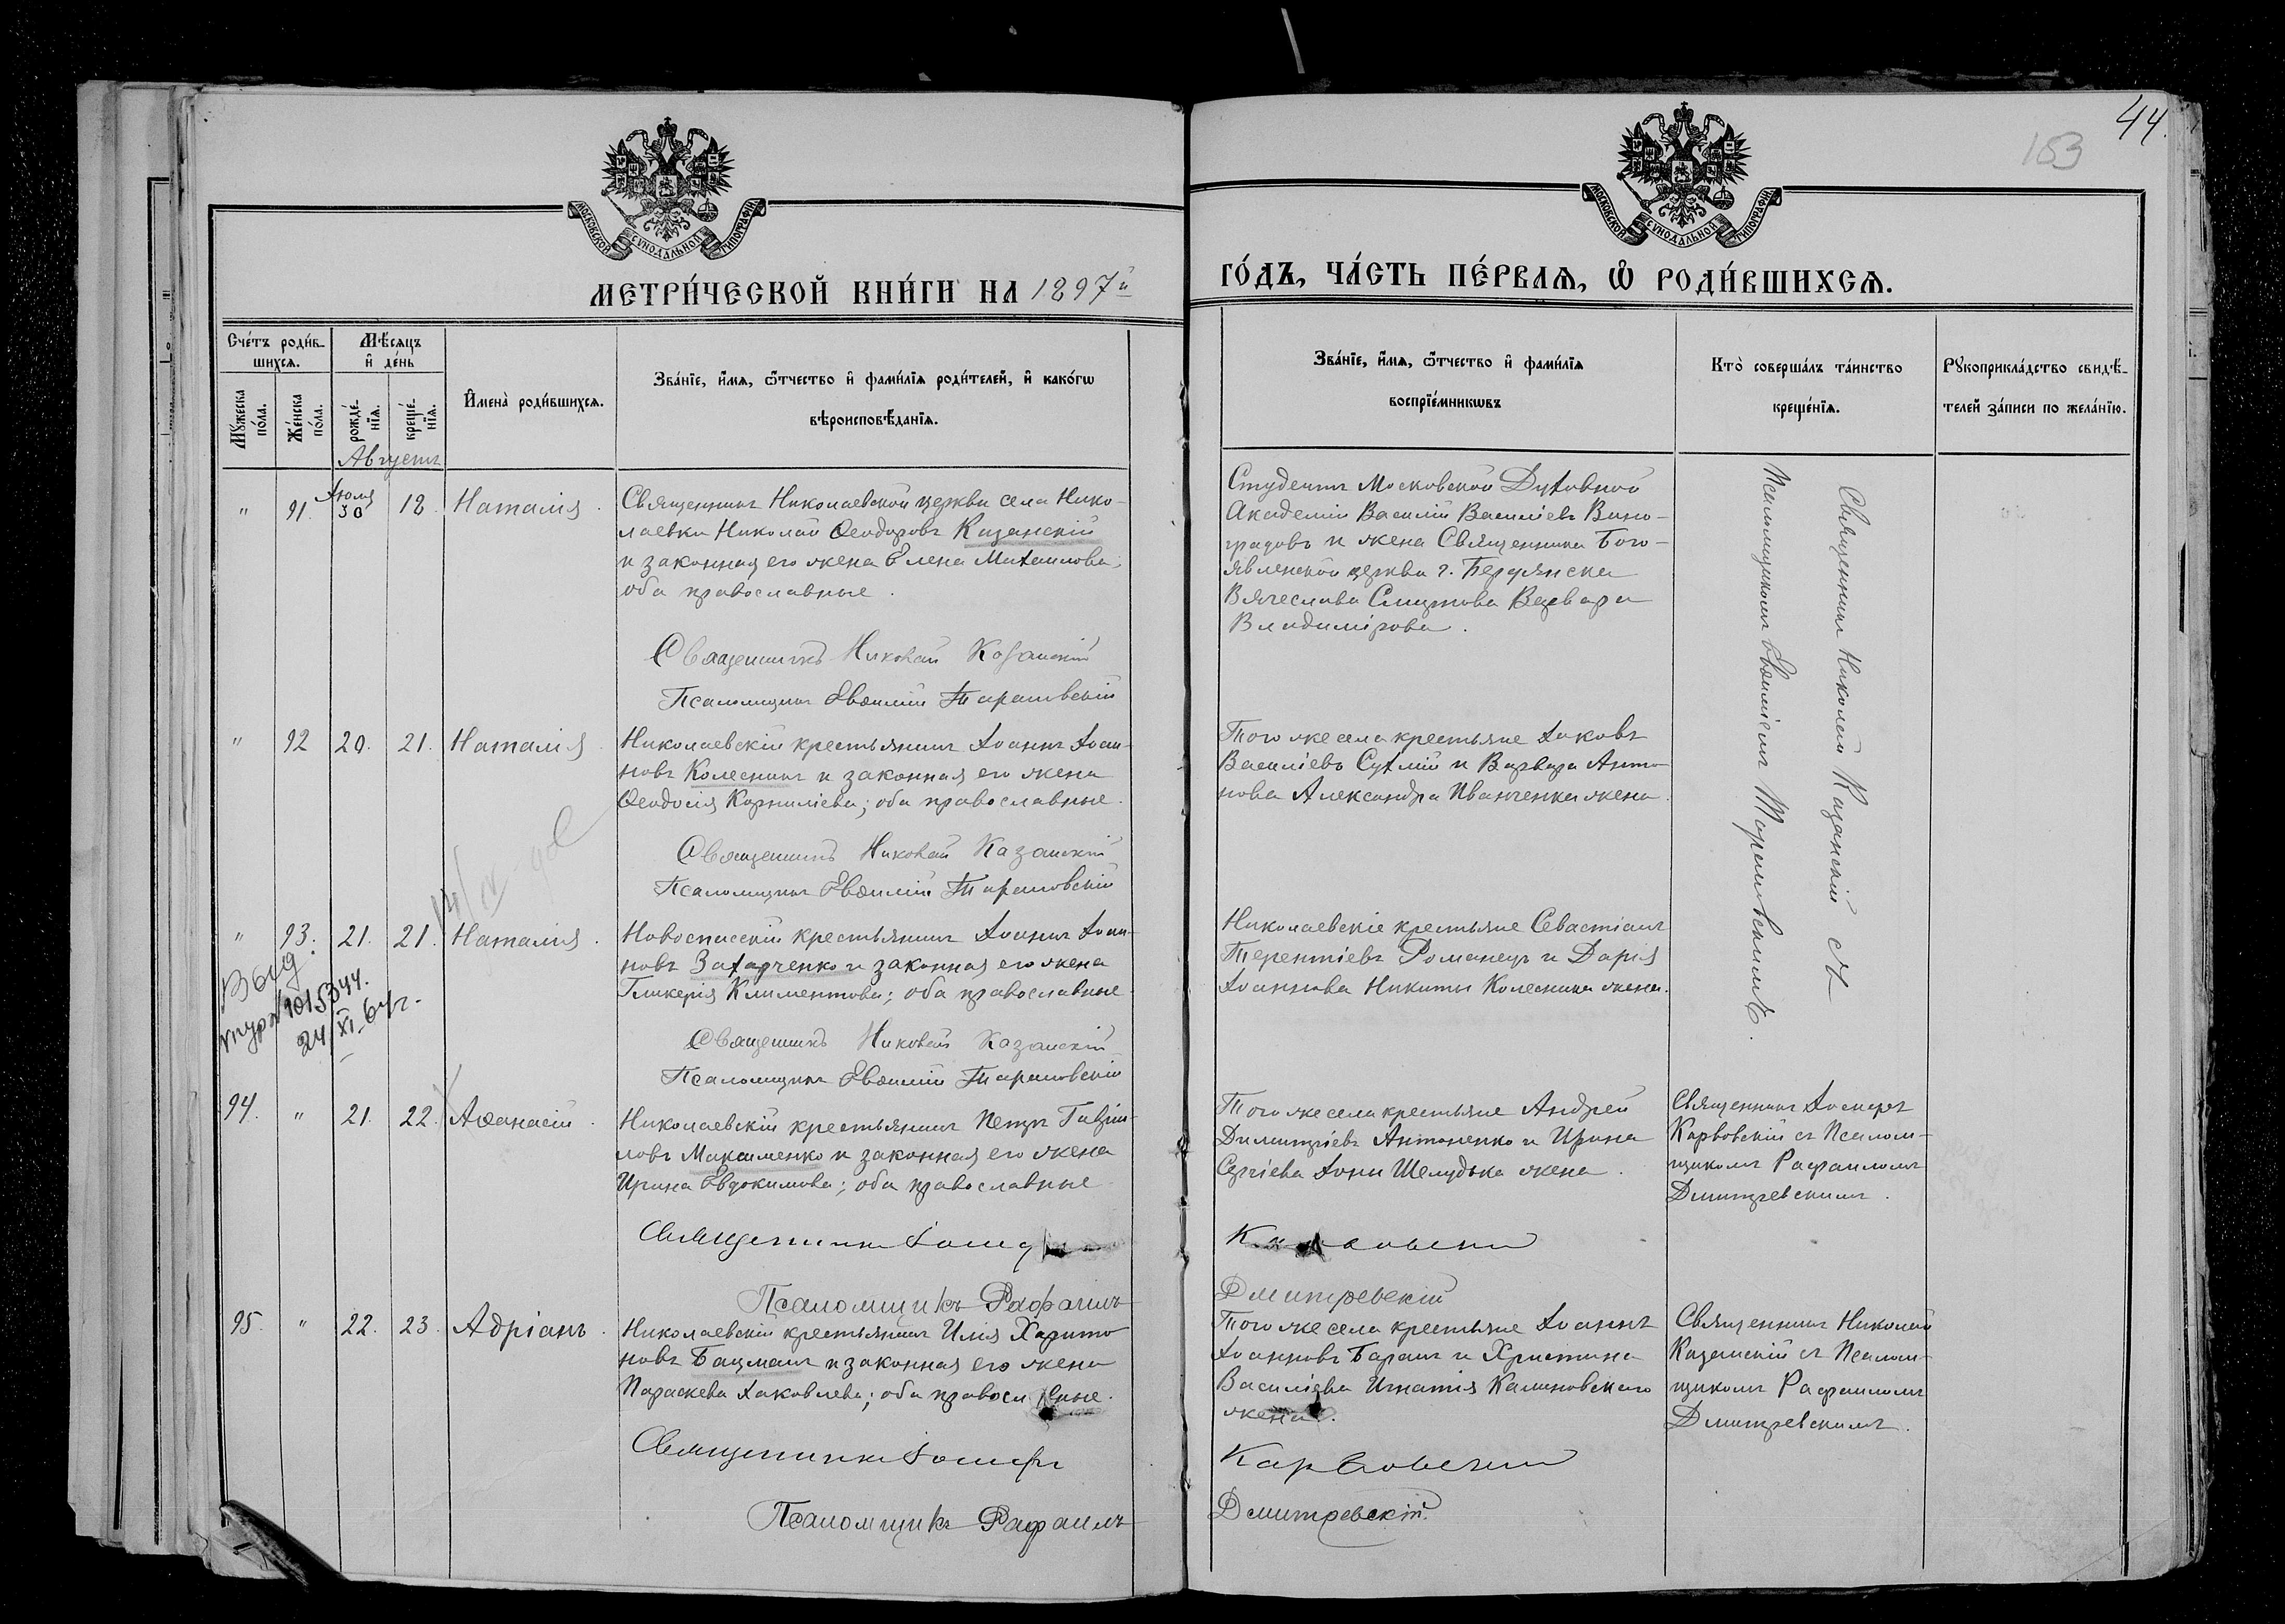 44.
153
МОСКОВСКОЙ СѴНОДАЛЬНОЙ ТИПОГРАФІИ
МОСКОВСКОЙ СѴНОДАЛЬНОЙ ТИПОГРАФІИ
МЕТРИ́ЧЕСКОЙ КНИ́ГИ НА 1897й
ГО́ДЪ, ЧА́СТЬ ПЕ́РВАЯ, Ѡ҆ РОДИ́ВШИХСЯ.
Сче́тъ роди́в-
шихся.
Мѣ́сяцъ
и҆ де́нь
Мꙋ́жеска
по́ла.
Же́нска
по́ла.
рожде́-
нїя.
креще́-
нїя.
И҆мена̀ роди́вшихся.
Зва́нїе, и҆́мя, ѻ҆́тчество и҆ фами́лїя роди́телей, и҆ како́гѡ
вѣроисповѣ́данїя.
Зва́нїе, и҆́мя, ѻ҆́тчество и҆ фами́лїя
воспрїе́мникѡвъ
Кто̀ соверша́лъ та́инство
креще́нїя.
Рꙋкоприкла́дство свидѣ́-
телей за́писи по жела́нїю.
Августъ
" 91. Іюля 30 18. Наталія.
Священникъ Николаевской церкви села Нико-
лаевки Николай Ѳеодоровъ Казанскій
и законная его жена Елена Михаилова;
оба православные.
Священникъ Николай Казанскій
Псаломщикъ Евѳимій Тарановскій
Студентъ Московской Духовной
Академіи Василій Василіевъ Вино-
градовъ и жена Священника Бого-
явленской церкви г. Бердянска
Вячеслава Варвара
Владимірова.
Священникъ Николай Казанскій съ
Псаломщикомъ Евѳиміемъ Тарановскимъ.
" 92 20. 21. Наталія.
Николаевскій крестьянинъ Іоаннъ Іоан-
новъ Колесникъ и законная его жена
Ѳеодосія Корниліева; оба православные.
Священникъ Николай Казанскій
Псаломщикъ Евѳимій Тарановскій
Того же села крестьяне Іаковъ
Василіевъ Сухлій и Варвара Анто-
нова Александра Иванченка жена.
" 93. 21. 21. Наталія.
Новоспасскій крестьянинъ Іоаннъ Іоан-
новъ Захарченко и законная его жена
Гликерія Климентова; оба православные.
Священникъ Николай Казанскій
Псаломщикъ Евѳимій Тарановскій
Николаевскіе крестьяне Севастіанъ
Терентіевъ Романецъ и Дарія
Іоаннова Никиты Колесника жена.
Выд.
1015344.
24/XI-64г.
94. " 21. 22. Аѳанасій.
Николаевскій крестьянинъ Петръ Гаврі-
ловъ Максименко и законная его жена
Ирина Евдокимова; оба православные
Священникъ
Псаломщикъ Рафаилъ
Того же села крестьяне Андрей
Димитріевъ Антоненко и Ирина
Сергіева Іоны Шелудька жена.
Дмитревскій
Священникъ Іосифъ
Карвовскій съ Псалом-
щикомъ Рафаиломъ
Дмитревскимъ.
95. " 22. 23. Адріанъ.
Николаевскій крестьянинъ Илія Харито-
новъ Бацманъ и законная его жена
Параскева Іаковлева; оба православные.
Священникъ Іосифъ
Псаломщикъ Рафаилъ
Того же села крестьяне Іоаннъ
Іоанновъ Баранъ и Христина
Василіева Игнатія Калиновскаго
жена.
Карвовскій
Дмитревскій.
Священникъ Николай
Казанскій съ Псалом-
щикомъ Рафаиломъ
Дмитревскимъ.